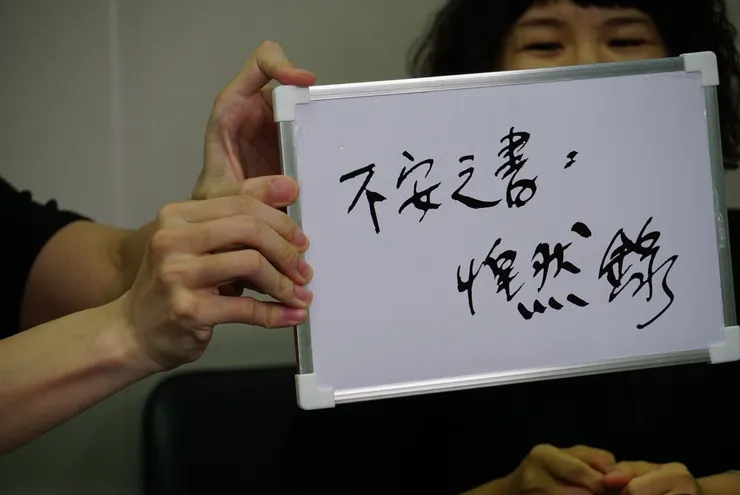 不安之書：
惶然錄